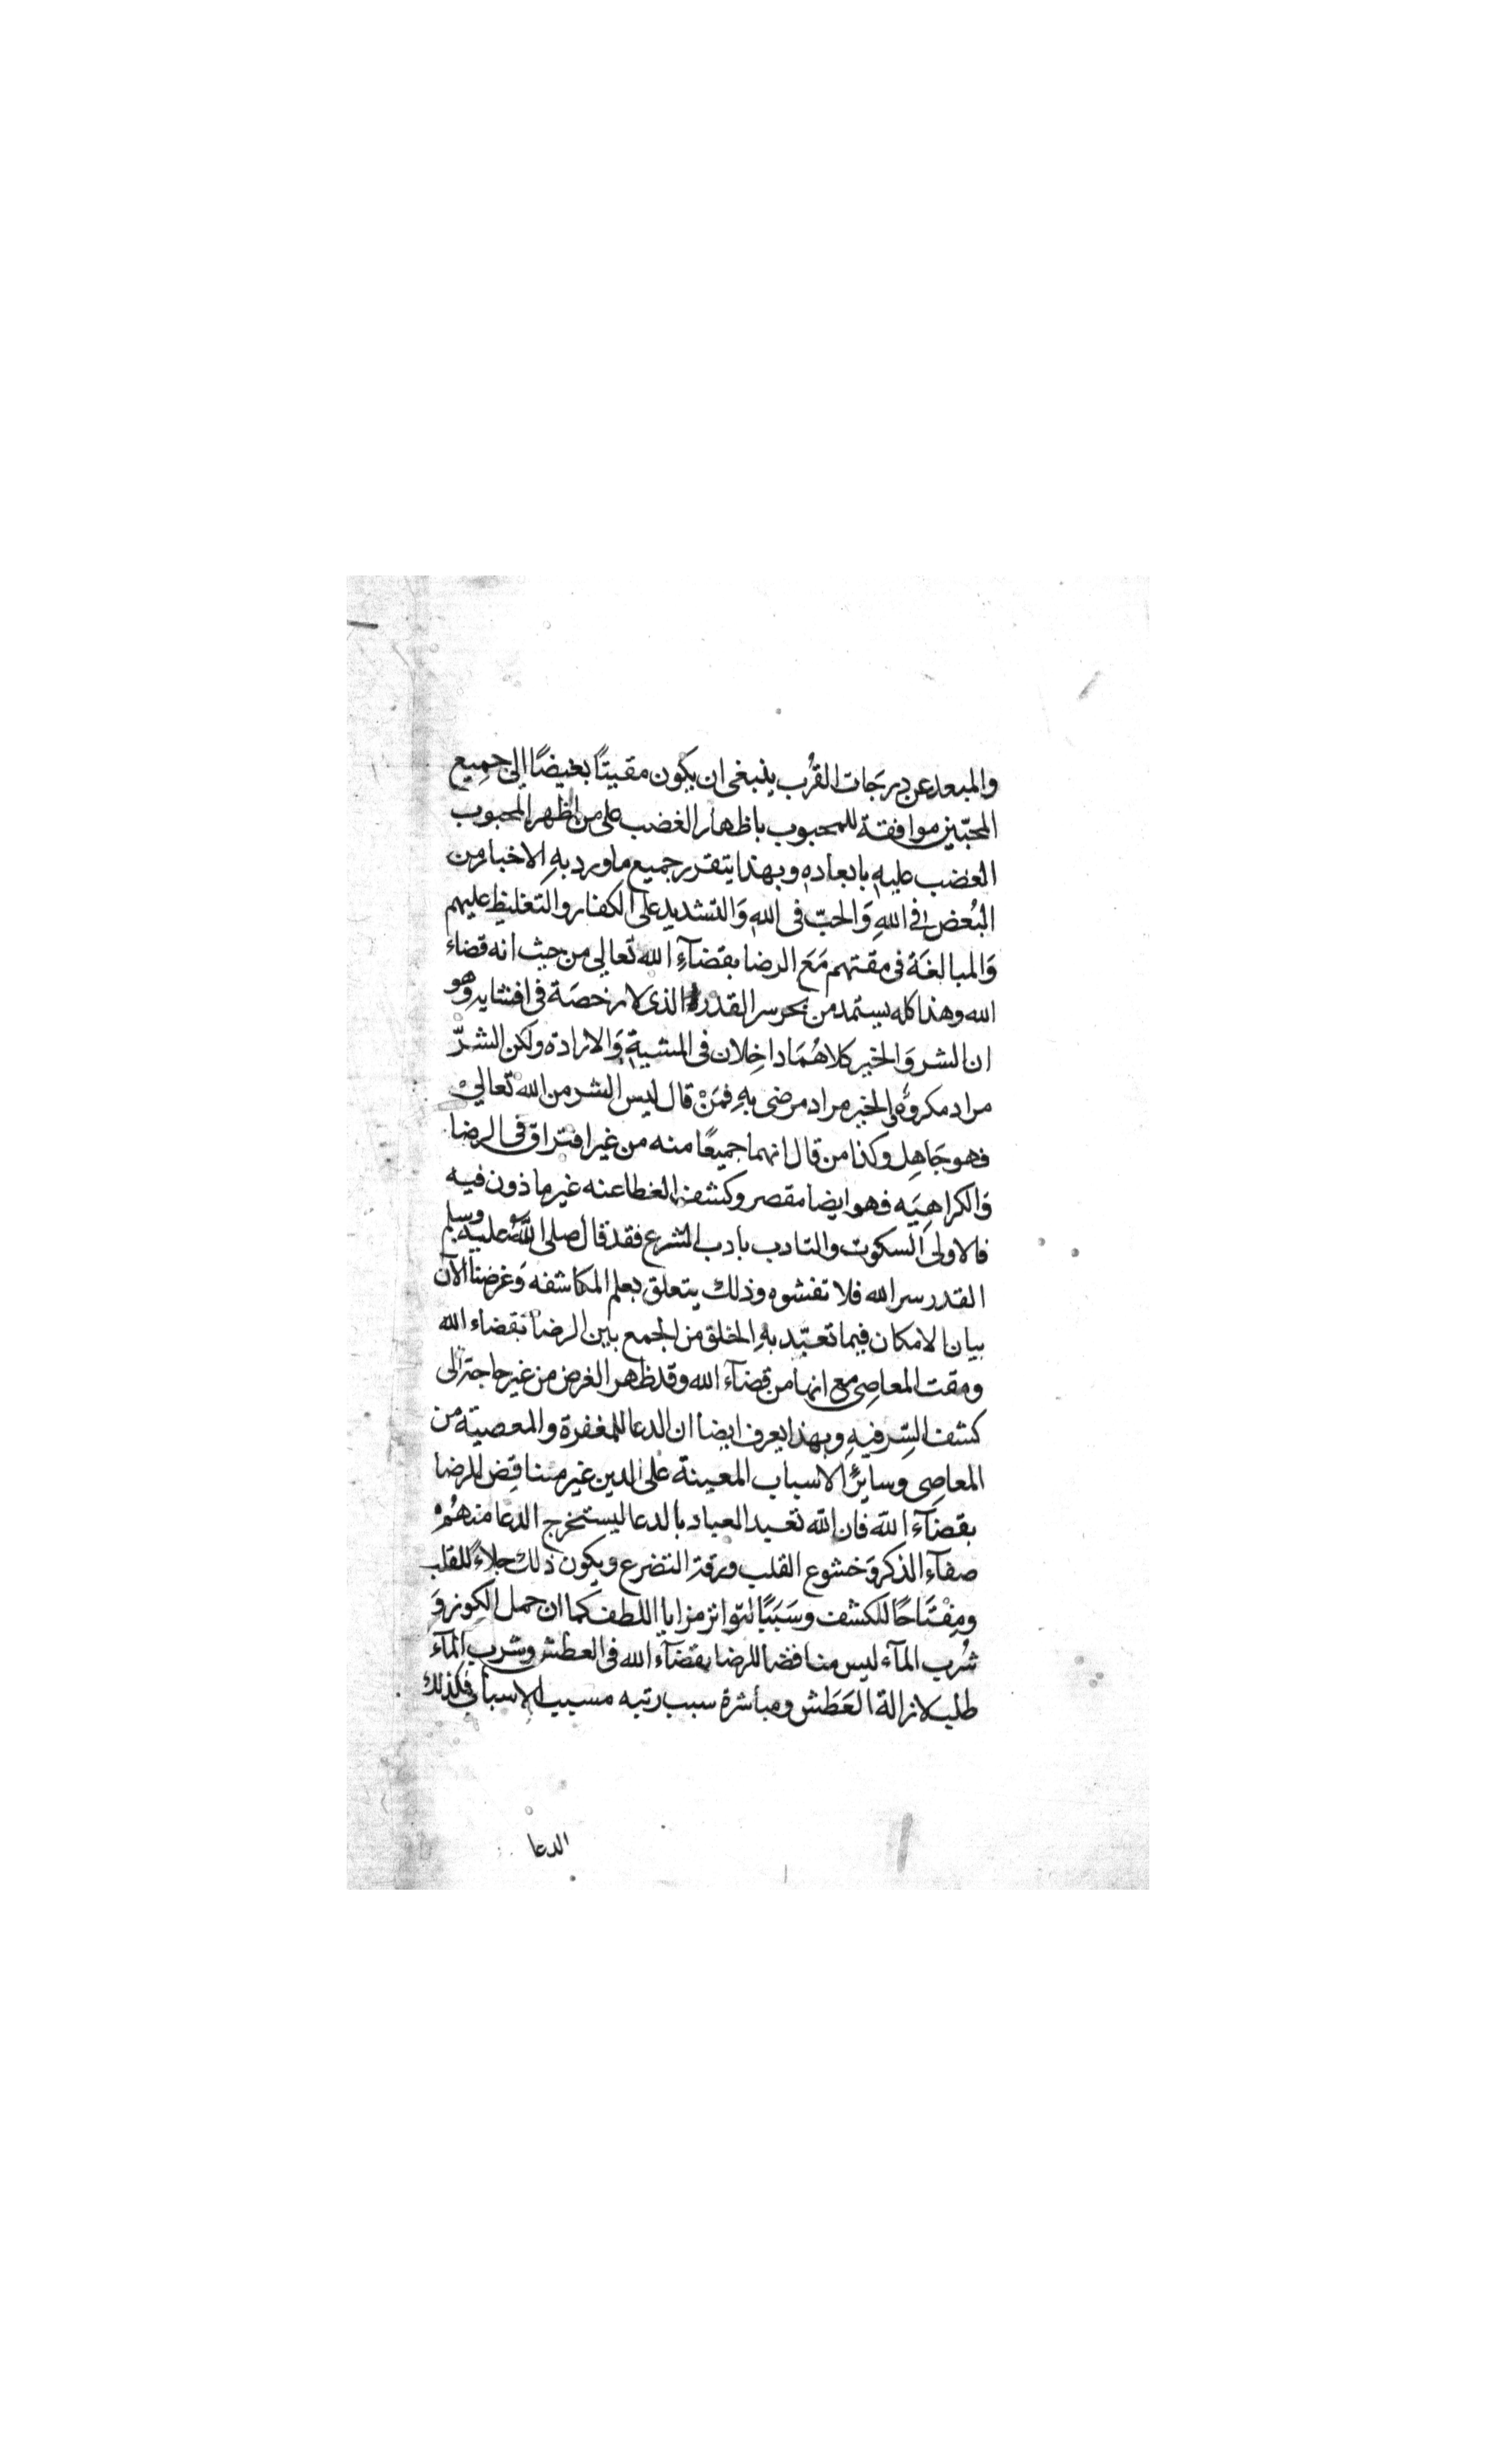 والمبعد عن درجات القُرب ينبغى ان يكون مقيتاً بغيضًا الى جميع
المحبّين موافقة للمحبوب باظهار الغضب على من اظهر المحبوب
الغضب عليه بابعاده وبهذا يتقرر جميع ما ورد بهِ الاخبار من
البُغض فى اللهِ وَالحبّ فى الله وَالتشديد على الكفار والتغليظ عليهم
وَالمبالغَة فى مقتهم مَعَ الرضا بقضآءِ الله تعالى من حيث انه قضاء
الله وهذا كله يستمد من بحر سر القدر الذى لا رخصَة فى افشايه وهو
ان الشر وَالخير كلاهُمَا داخِلان فى المشية وَالارادة ولكن الشرّ
مراد مكروهٌ والخير مراد مرضى بهِ فمَنْ قال ليس الشر من الله تعالى
فهو جَاهِل وكذا من قال انهما جميعًا منه من غير افتراق فى الرضا
وَالكراهِيَه فهو ايضا مقصر وكشف الغطا عنه غير ماذون فيه
فالاولى السكوت والتادب بادب الشرع فقد قال صلى اللهُ عليه وسلم
القدر سر الله فلا تفشوه وذلك يتعلق بعلم المكاشفه وَغرضنا الآن
بيان الامكان فيما تعبّد بهِ الخلق من الجمع بين الرضا بقضاء الله
ومقت المعاصِى مع انها من قضآء الله وقد ظهر الغرض من غير حاجة الى
كشف السِّر فيهِ وبهذا يعرف ايضا ان الدعا للمغفرة والمعصية من
المعاصِى وسايرُ الاسباب المعينة على الدين غير مناقِض للرضا
بقضآء الله فان الله تعبد العباد بالدعا ليستخرج الدعا منهُم
صفآء الذكر وَخشوع القلب ورقة التضرع ويكون ذلك جلاءً للقلب
ومِفْتَاحًا للكشف وسَبَبًا لتواتر مزايا اللطف كما ان حمل الكوز وَ
شُرب المآء ليس مناقضا للرضا بقضآء الله فى العطش وشرب المآء
طلب لازالة العَطَش ومباشرة سبب رتبه مسبب الاسباب فكذلك
الدعا